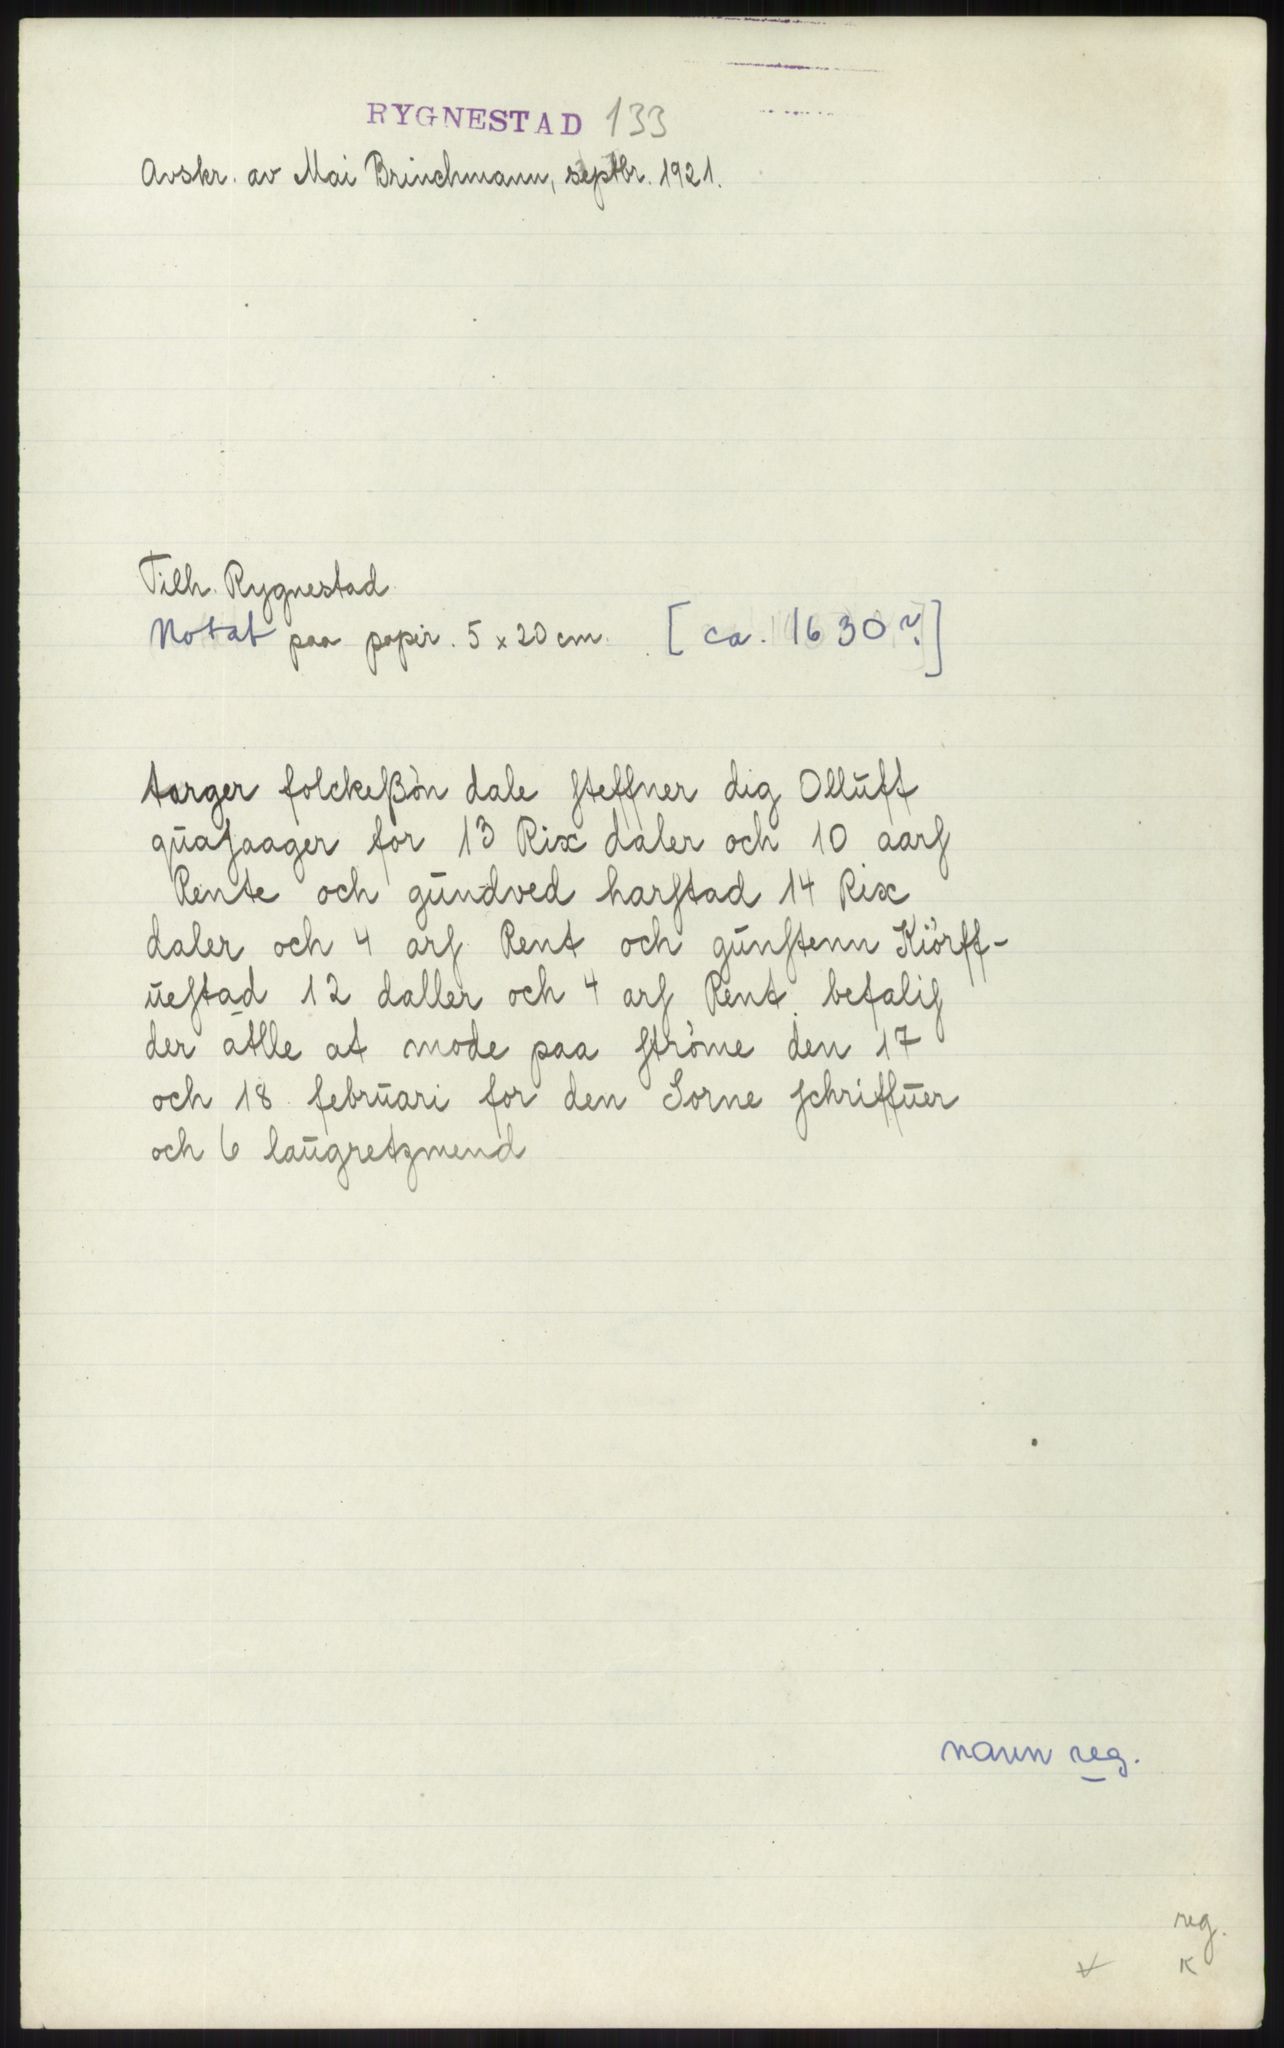 RYGNESTAD 133
Avskr. av Mai Brinchmann, septbr. 1921.
Tilh. Rygnestad
Notat paa papir. 5 x 20 cm. [ca. 1630?]
targer folckeßön dale steffner dig Olluff
quasaager for 13 Rix daler och 10 aars
Rente och gundved harstad 14 Rix
daler och 4 ars Rent och gunstenn Kiörff-
uestad 12 daller och 4 ars Rent. betalis
der atlle at mode paa ströme den 17
och 18 februari for den Sorne schriffuer
och 6 laugretzmend
navn reg.
reg.
K